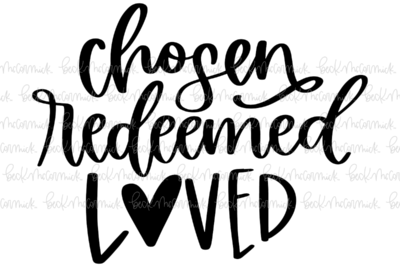 chosen
redeemed
LOVED